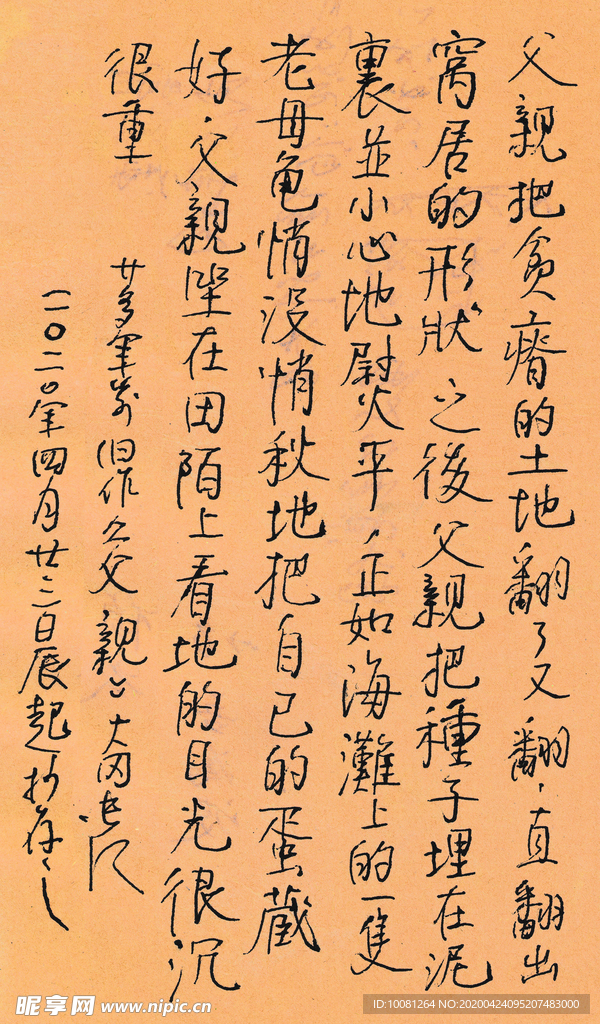 父親把貧瘠的土地翻了又翻,直翻出
窩居的形狀之後父親把種子埋在泥
裏並小心地熨平,正如海灘上的一隻
老母龟悄没悄秋地把自已的蛋蔵
好,父親坐在田陌上看地的目光很沉
很重
廿多年前旧作父親
二〇二〇年四月廿三日晨起抄存之
昵享网 www.nipic.cn
ID:10081264 NO:20200424095207483000